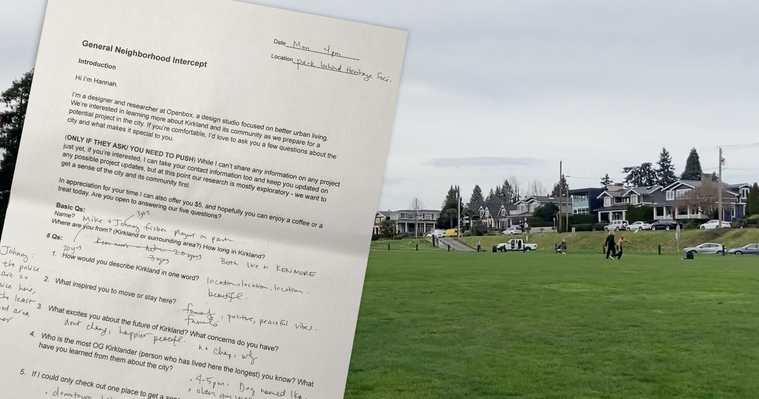 Date Mon 4pm
General Neighborhood Intercept
Location park behind Heritage Soci.
Introduction
Hi I'm Hannah.
I'm a designer and researcher at Openbox, a design studio focused on better urban living.
We're interested in learning more about Kirkland and its community as we prepare for a
potential project in the city. If you're comfortable, I'd love to ask you a few questions about the
city and what makes it special to you.
(ONLY IF THEY ASK/ YOU NEED TO PUSH) While I can't share any information on any project
just yet, if you're interested, I can take your contact information too and keep you updated on
any possible project updates, but at this point our research is mostly exploratory - we want to
get a sense of the city and its community first.
In appreciation for your time I can also offer you $5, and hopefully you can enjoy a coffee or a
treat today. Are you open to answering our five questions?
Basic Qs:
Name? Mike + Johnny frisbee players in park
Where are you from? (Kirkland or surrounding area?) How long in Kirkland?
5 Qs:
Both live + KENMORE
1. How would you describe Kirkland in one word? location, location, location.
beautiful.
2. What inspired you to move or stay here?
family, positive, peaceful vibes.
3. What excites you about the future of Kirkland? What concerns do you have?
dont change, happier peaceful.
4. Who is the most OG Kirklander (person who has lived here the longest) you know? What
have you learned from them about the city?
5. If I could only check out one place to get a
downtown
Johnny:
the police
are so
nice here,
the least